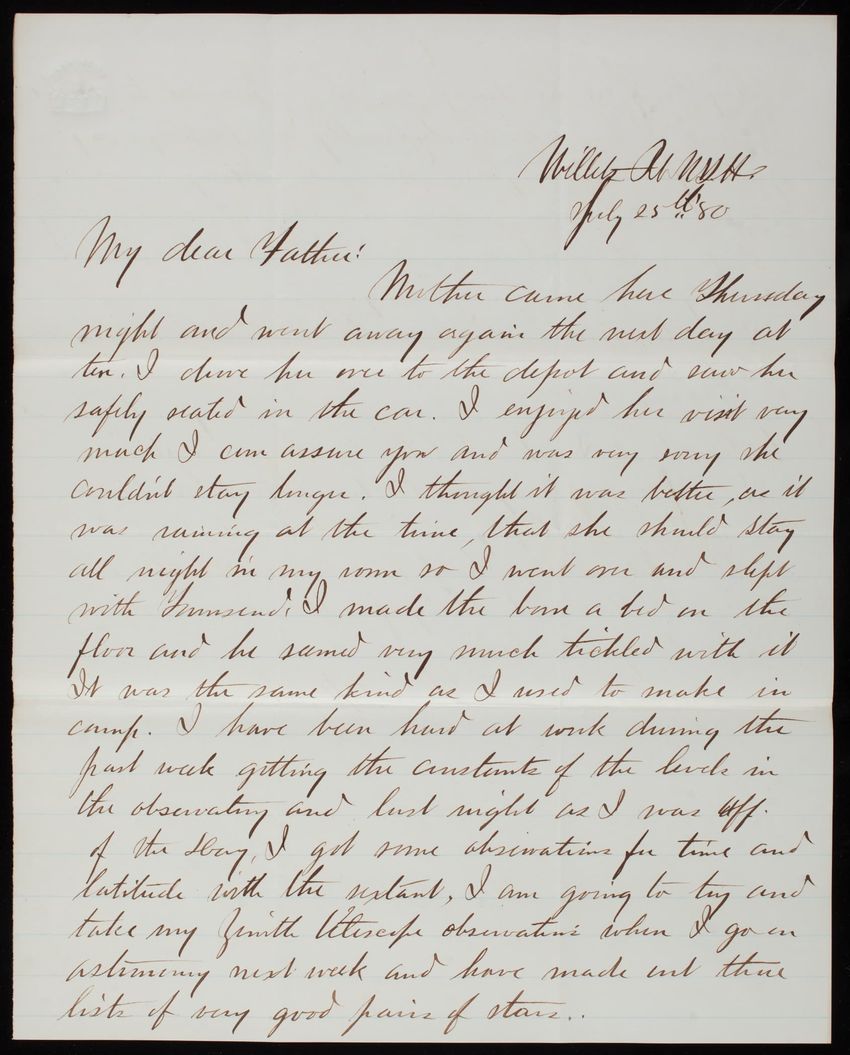 Willets Pt NYH.
July 25th '80
My dear Father:
Mother came here Thursday
night and went away again the next day at
ten. I drove her over to the depot and saw her
safely seated in the car. I enjoyed her visit very
much I can assure you and was very sorry she
couldn't stay longer. I thought it was better, as it
was raining at the time, that she should stay
all night in my room so I went over and slept
with Townsend. I made the born a bed on the
floor and he seemed very much tickled with it
It was the same kind as I used to make in
camp. I have been hard at work during the
past week getting the constants of the levels in
the observatory and last night as I was off.
of the Day, I got some observations for time and
latitude with the sextant, I am going to try and
take my Zenith Telescope observations when I go on
astronomy next week and have made out three
lists of very good pairs of stars..